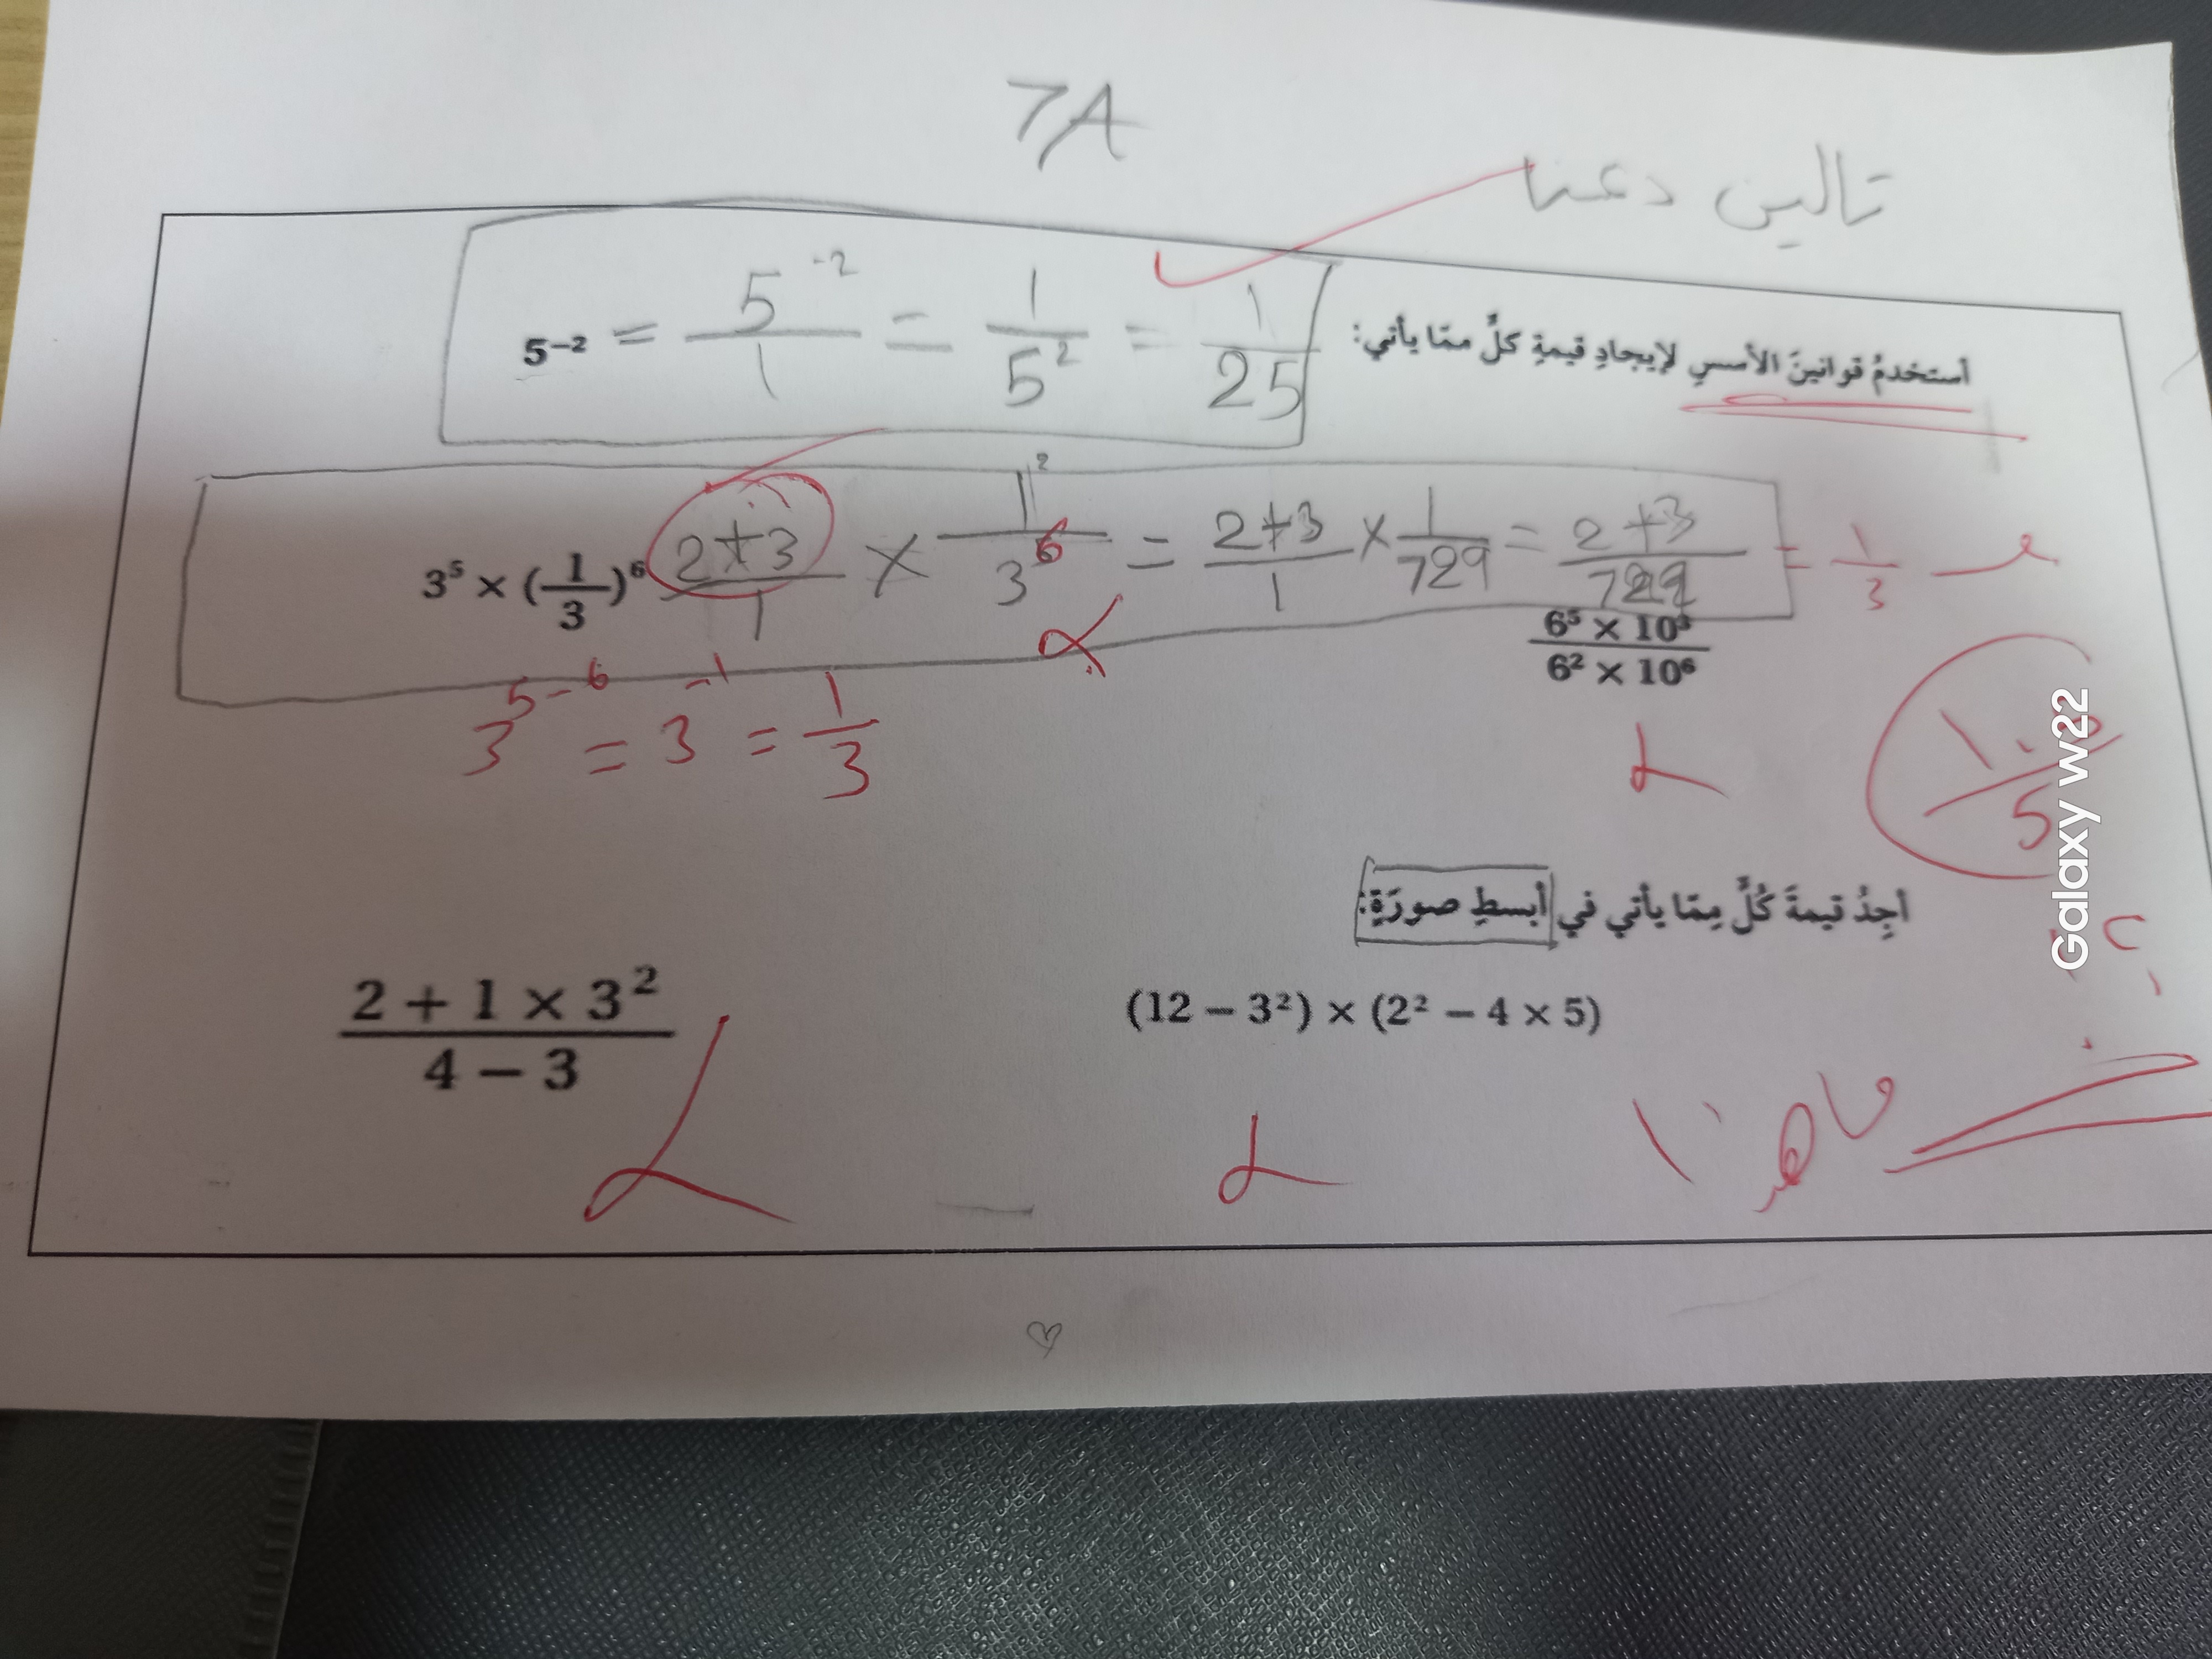 7A
تالين دعنا
أستخدمُ قوانينَ الأسسِ لإيجادِ قيمةِ كلٍّ ممّا يأتي:
5⁻² = 5⁻²/1 = 1/5² = 1/25
3⁵ × (1/3)⁶ 2+3/1 × 1/3⁶ = 2+3/1 × 1/729 = 2+3/729 = 1/3
3⁵⁻⁶ = 3⁻¹ = 1/3
6⁵ × 10³ / 6² × 10⁶
أجِدُ قيمةَ كُلٍّ مِمّا يأتي في أبسطِ صورَةٍ:
(12 − 3²) × (2² − 4 × 5)
2 + 1 × 3² / 4 − 3
Galaxy w22